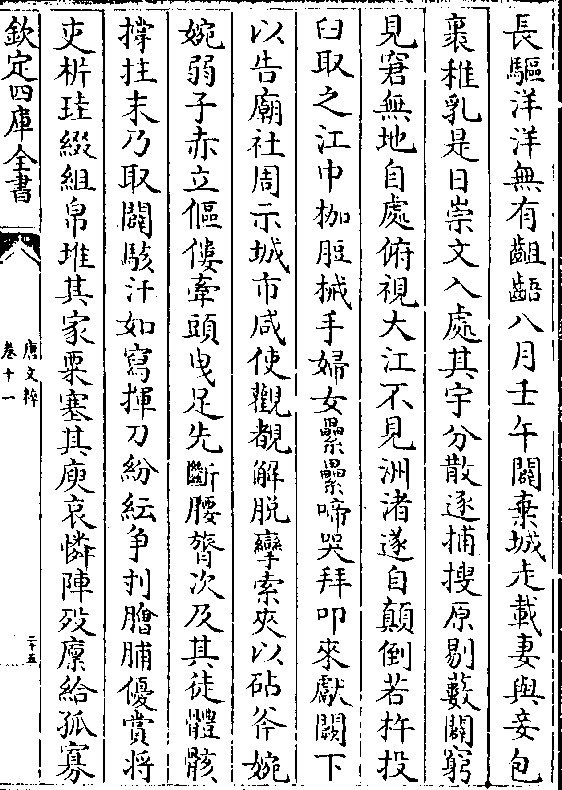 長驅洋洋無有齟齬八月壬午闢棄城走載妻與妾包
裹稚乳是日崇文入處其宇分散逐捕搜原剔藪闢窮
見窘無地自處俯視大江不見洲渚遂自顛倒若杵投
臼取之江中枷脰械手婦女纍纍啼哭拜叩來獻闕下
以告廟社周示城市咸使觀覩解脱攣索夾以砧斧婉
婉弱子赤立傴僂牽頭曳足先斷腰膂次及其徒體骸
撑拄末乃取闢駭汗如寫揮刀紛紜争刌膾脯優賞將
吏析珪綴組帛堆其家粟塞其庾哀憐陣殁廩給孤寡
欽定四庫全書
唐文粹
卷十一
二十五